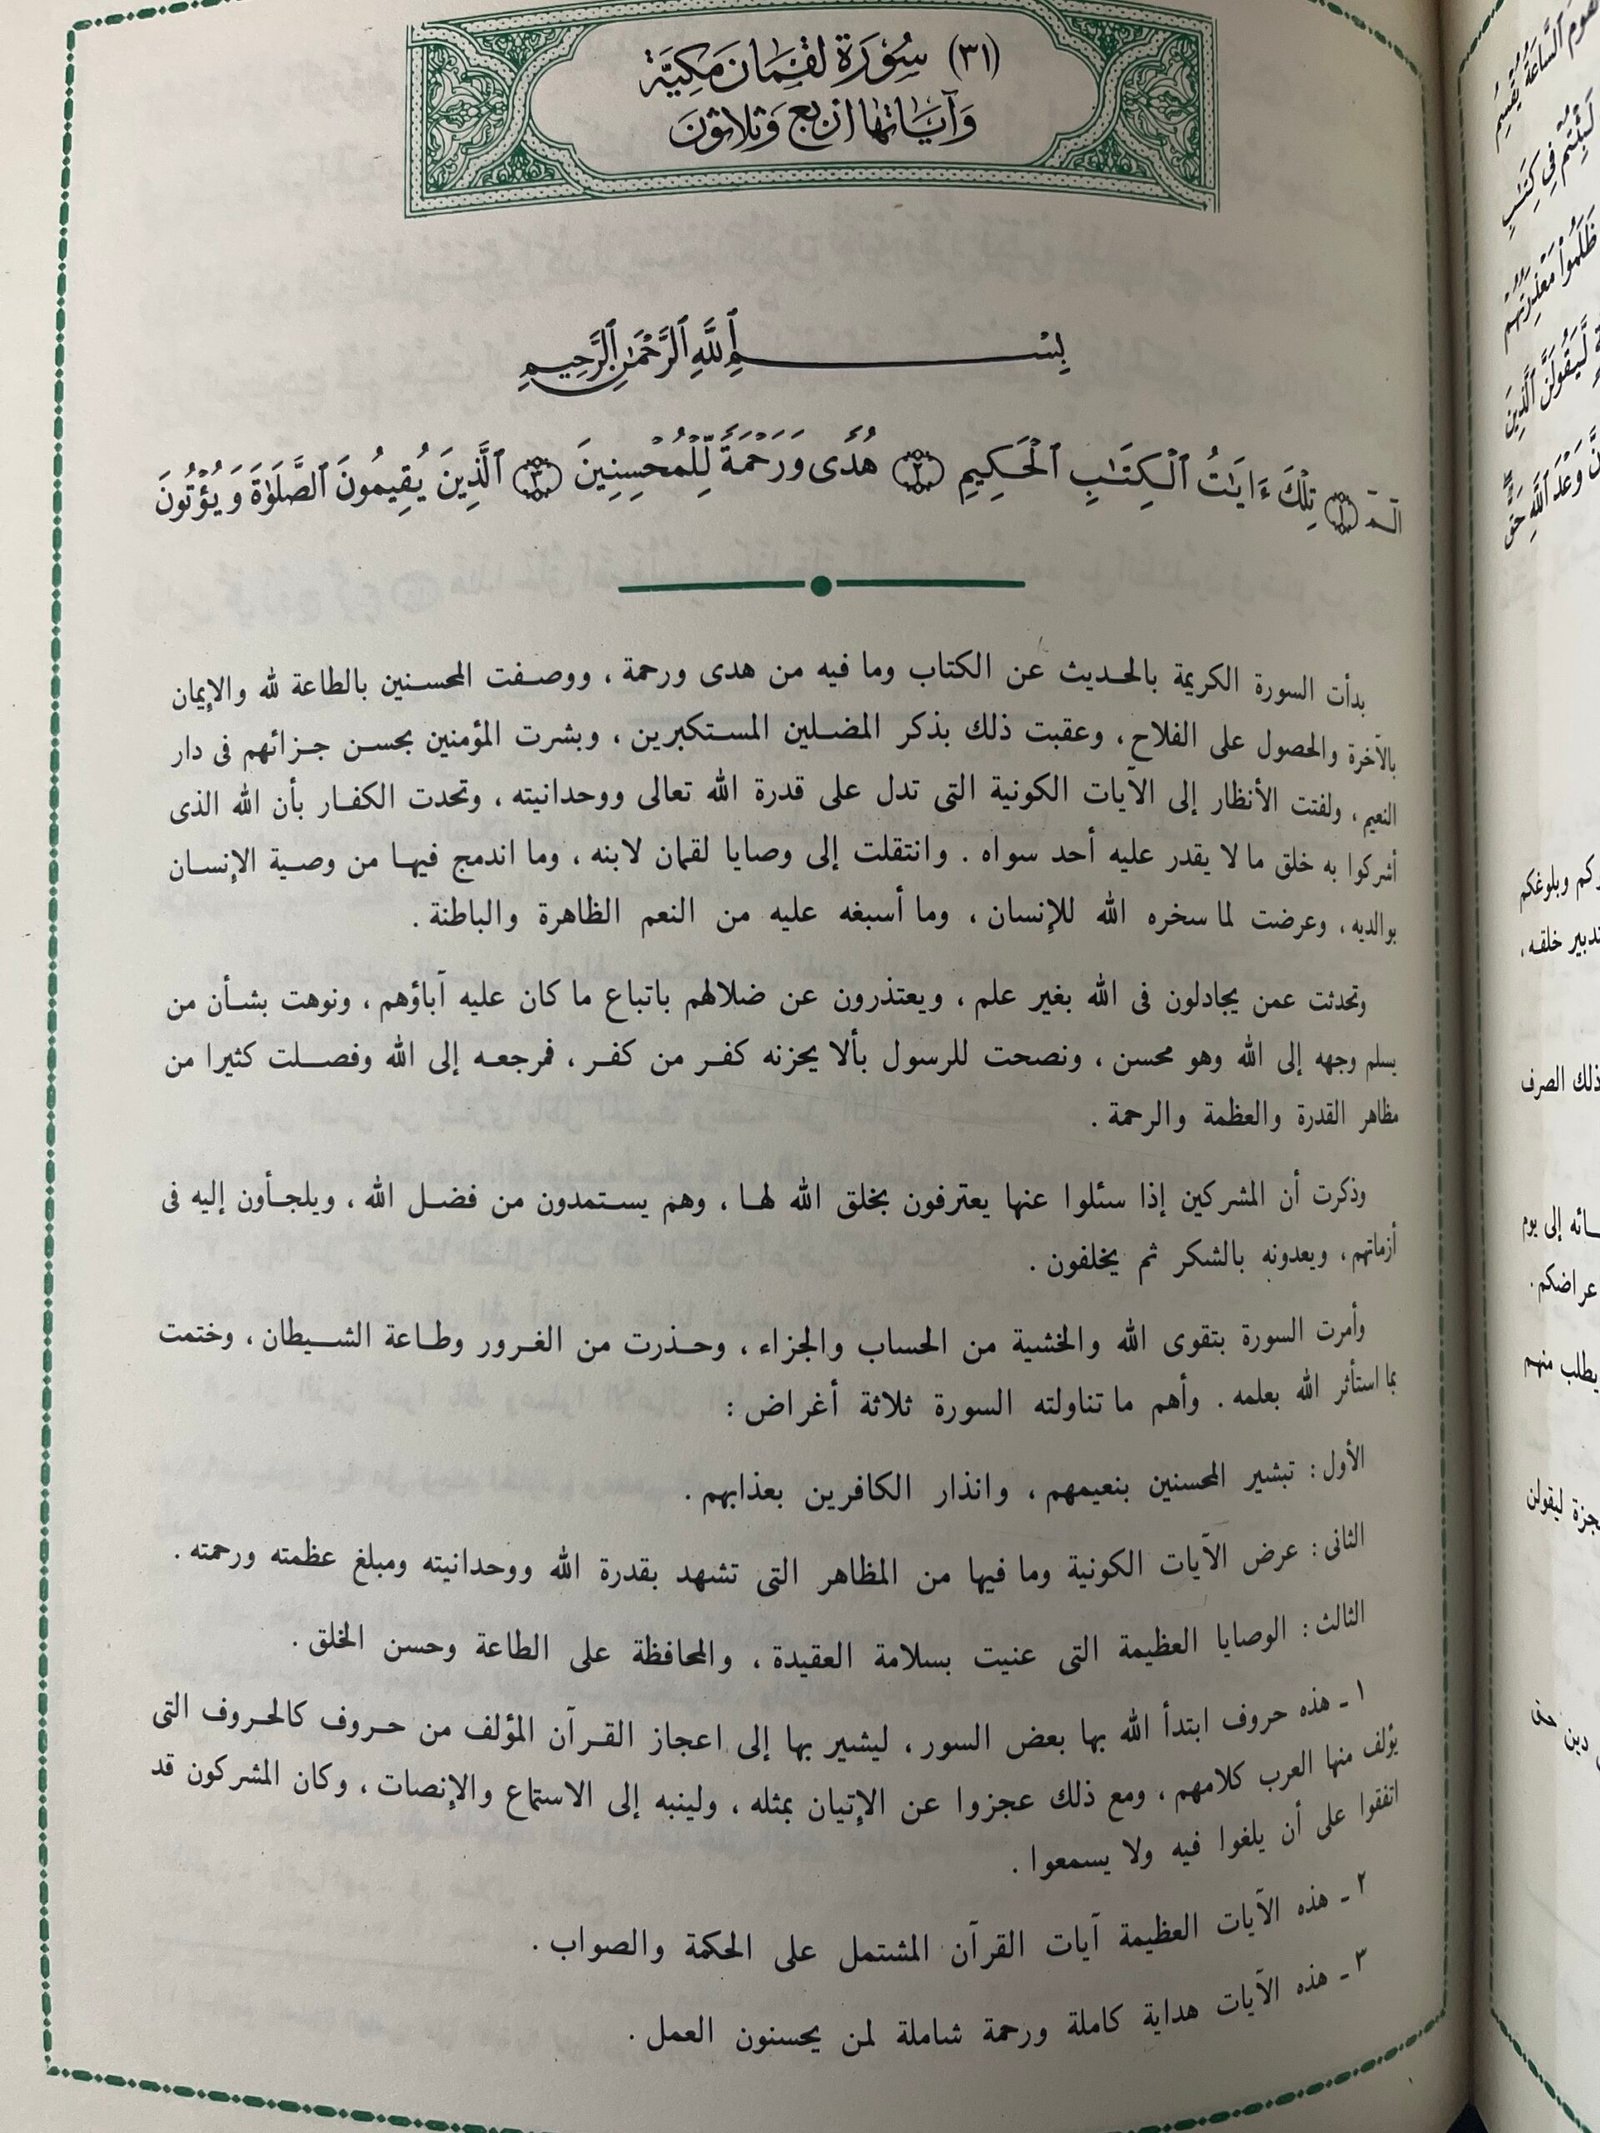 (٣١) سُورَة لقمَان مَكيَّة
وَآيَاتهَا أربَع وَثَلاثون
بِسْمِ ٱللَّهِ ٱلرَّحْمَٰنِ ٱلرَّحِيمِ
الٓمٓ ۝١ تِلْكَ ءَايَٰتُ ٱلْكِتَٰبِ ٱلْحَكِيمِ ۝٢ هُدًى وَرَحْمَةً لِّلْمُحْسِنِينَ ۝٣ ٱلَّذِينَ يُقِيمُونَ ٱلصَّلَوٰةَ وَيُؤْتُونَ
بدأت السورة الكريمة بالحديث عن الكتاب وما فيه من هدى ورحمة ، ووصفت المحسنين بالطاعة لله والإيمان
بالآخرة والحصول على الفلاح، وعقبت ذلك بذكر المضلين المستكبرين ، وبشرت المؤمنين بحسن جزائهم فى دار
النعيم ، ولفتت الأنظار إلى الآيات الكونية التى تدل على قدرة الله تعالى ووحدانيته ، وتحدت الكفار بأن الله الذى
أشركوا به خلق ما لا يقدر عليه أحد سواه . وانتقلت إلى وصايا لقمان لابنه ، وما اندمج فيها من وصية الإنسان
بوالديه ، وعرضت لما سخره الله للإنسان ، وما أسبغه عليه من النعم الظاهرة والباطنة .
وتحدثت عمن يجادلون فى الله بغير علم ، ويعتذرون عن ضلالهم باتباع ما كان عليه آباؤهم ، ونوهت بشأن من
يسلم وجهه إلى الله وهو محسن ، ونصحت للرسول بألا يحزنه كفر من كفر ، فمرجعه إلى الله وفصلت كثيرا من
مظاهر القدرة والعظمة والرحمة .
وذكرت أن المشركين إذا سئلوا عنها يعترفون بخلق الله لها ، وهم يستمدون من فضل الله ، ويلجأون إليه فى
أزماتهم، ويعدونه بالشكر ثم يخلفون .
وأمرت السورة بتقوى الله والخشية من الحساب والجزاء ، وحذرت من الغرور وطاعة الشيطان ، وختمت
بما استأثر الله بعلمه . وأهم ما تناولته السورة ثلاثة أغراض :
الأول : تبشير المحسنين بنعيمهم ، وانذار الكافرين بعذابهم .
الثانى : عرض الآيات الكونية وما فيها من المظاهر التى تشهد بقدرة الله ووحدانيته ومبلغ عظمته ورحمته .
الثالث : الوصايا العظيمة التى عنيت بسلامة العقيدة ، والمحافظة على الطاعة وحسن الخلق .
١ - هذه حروف ابتدأ الله بها بعض السور ، ليشير بها إلى اعجاز القرآن المؤلف من حروف كالحروف التى
يؤلف منها العرب كلامهم ، ومع ذلك عجزوا عن الإتيان بمثله ، ولينبه إلى الاستماع والإنصات ، وكان المشركون قد
اتفقوا على أن يلغوا فيه ولا يسمعوا .
٢ - هذه الآيات العظيمة آيات القرآن المشتمل على الحكمة والصواب .
٣ - هذه الآيات هداية كاملة ورحمة شاملة لمن يحسنون العمل .
ٱلسَّاعَةُ يُقْسِمُ
لَبِثْتُمْ فِى كِتَٰبِ
ظَلَمُوا۟ مَعْذِرَتُهُمْ
لَّيَقُولَنَّ ٱلَّذِينَ
وَعْدَ ٱللَّهِ حَقٌّ
وبلوغكم
خلقه ،
ذلك الصرف
إلى يوم
يطلب منهم
ليقولن
دين حق